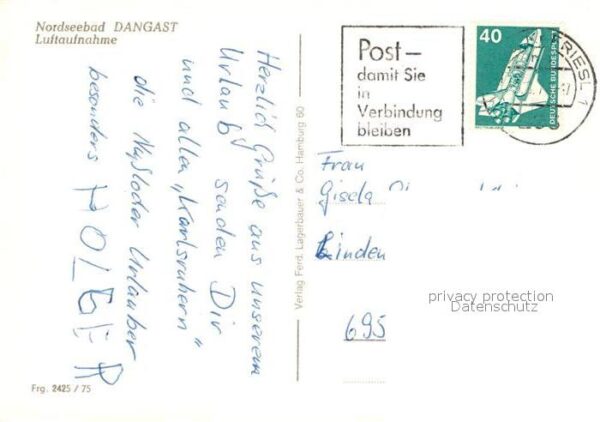 Nordseebad DANGAST
Luftaufnahme
Herzlich Grüße aus unserem
Urlaub senden Dir
und allen „Karlsruhern"
die Urlauber
besonders HOLGER
Frg. 2425 / 75
Verlag Ferd. Lagerbauer & Co. Hamburg 60
Post –
damit Sie
in
Verbindung
bleiben
40
DEUTSCHE BUNDESPOST
FRIESL 1
Frau
Gisela
Linden
695
privacy protection
Datenschutz